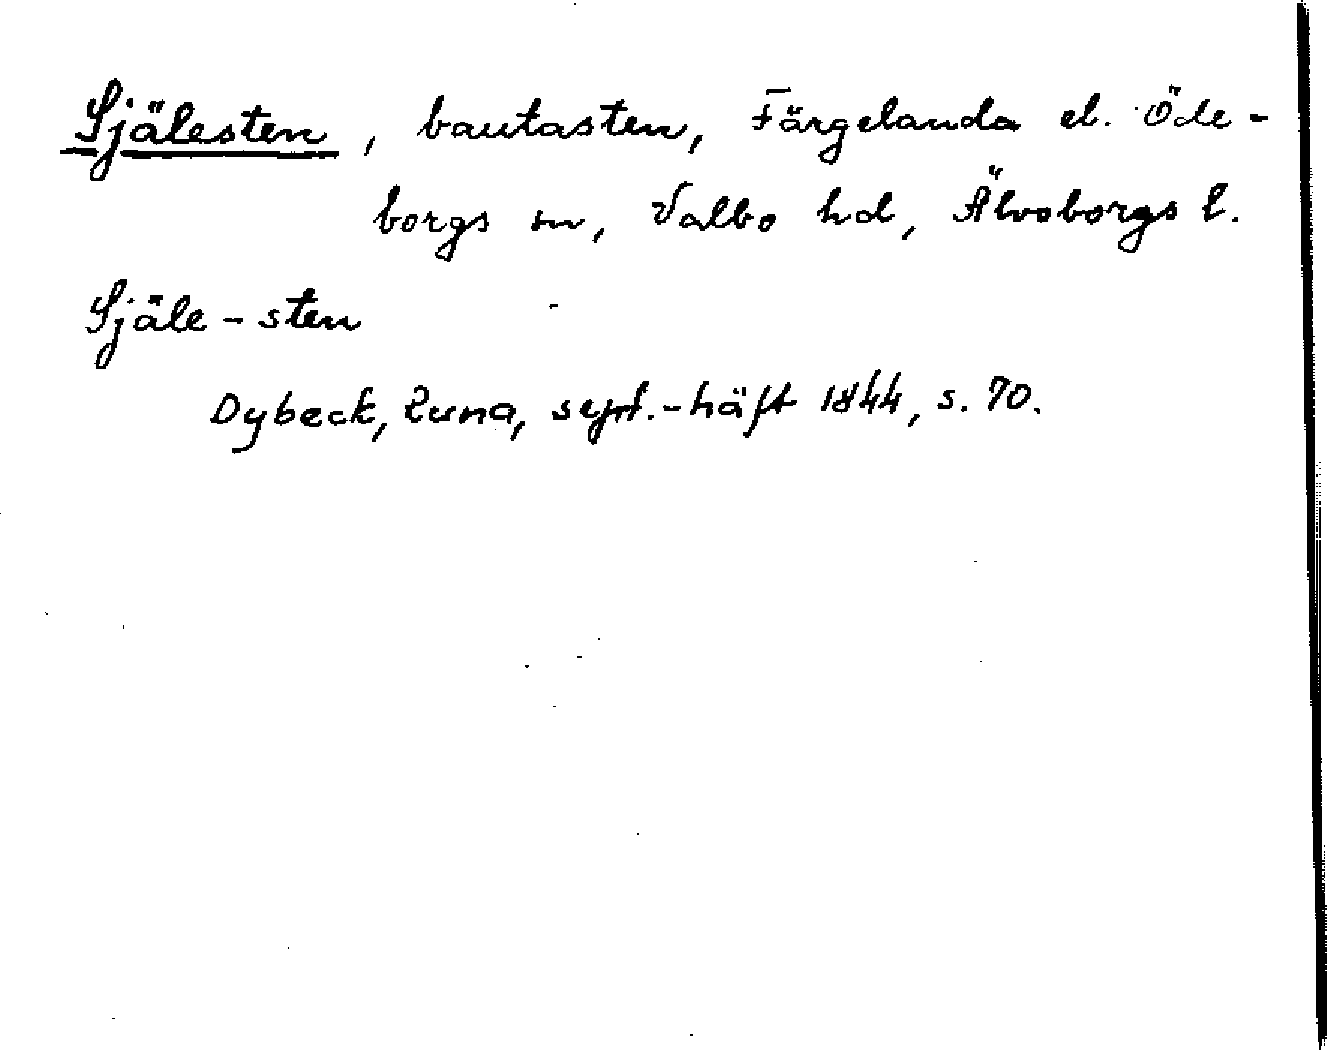 Själesten, bautasten, Färgelanda el. Öde-
borgs sn, Valbo hd, Älvsborgs l.
Själe-sten
Dybeck, Runa, sept.-häft 1844, s. 70.